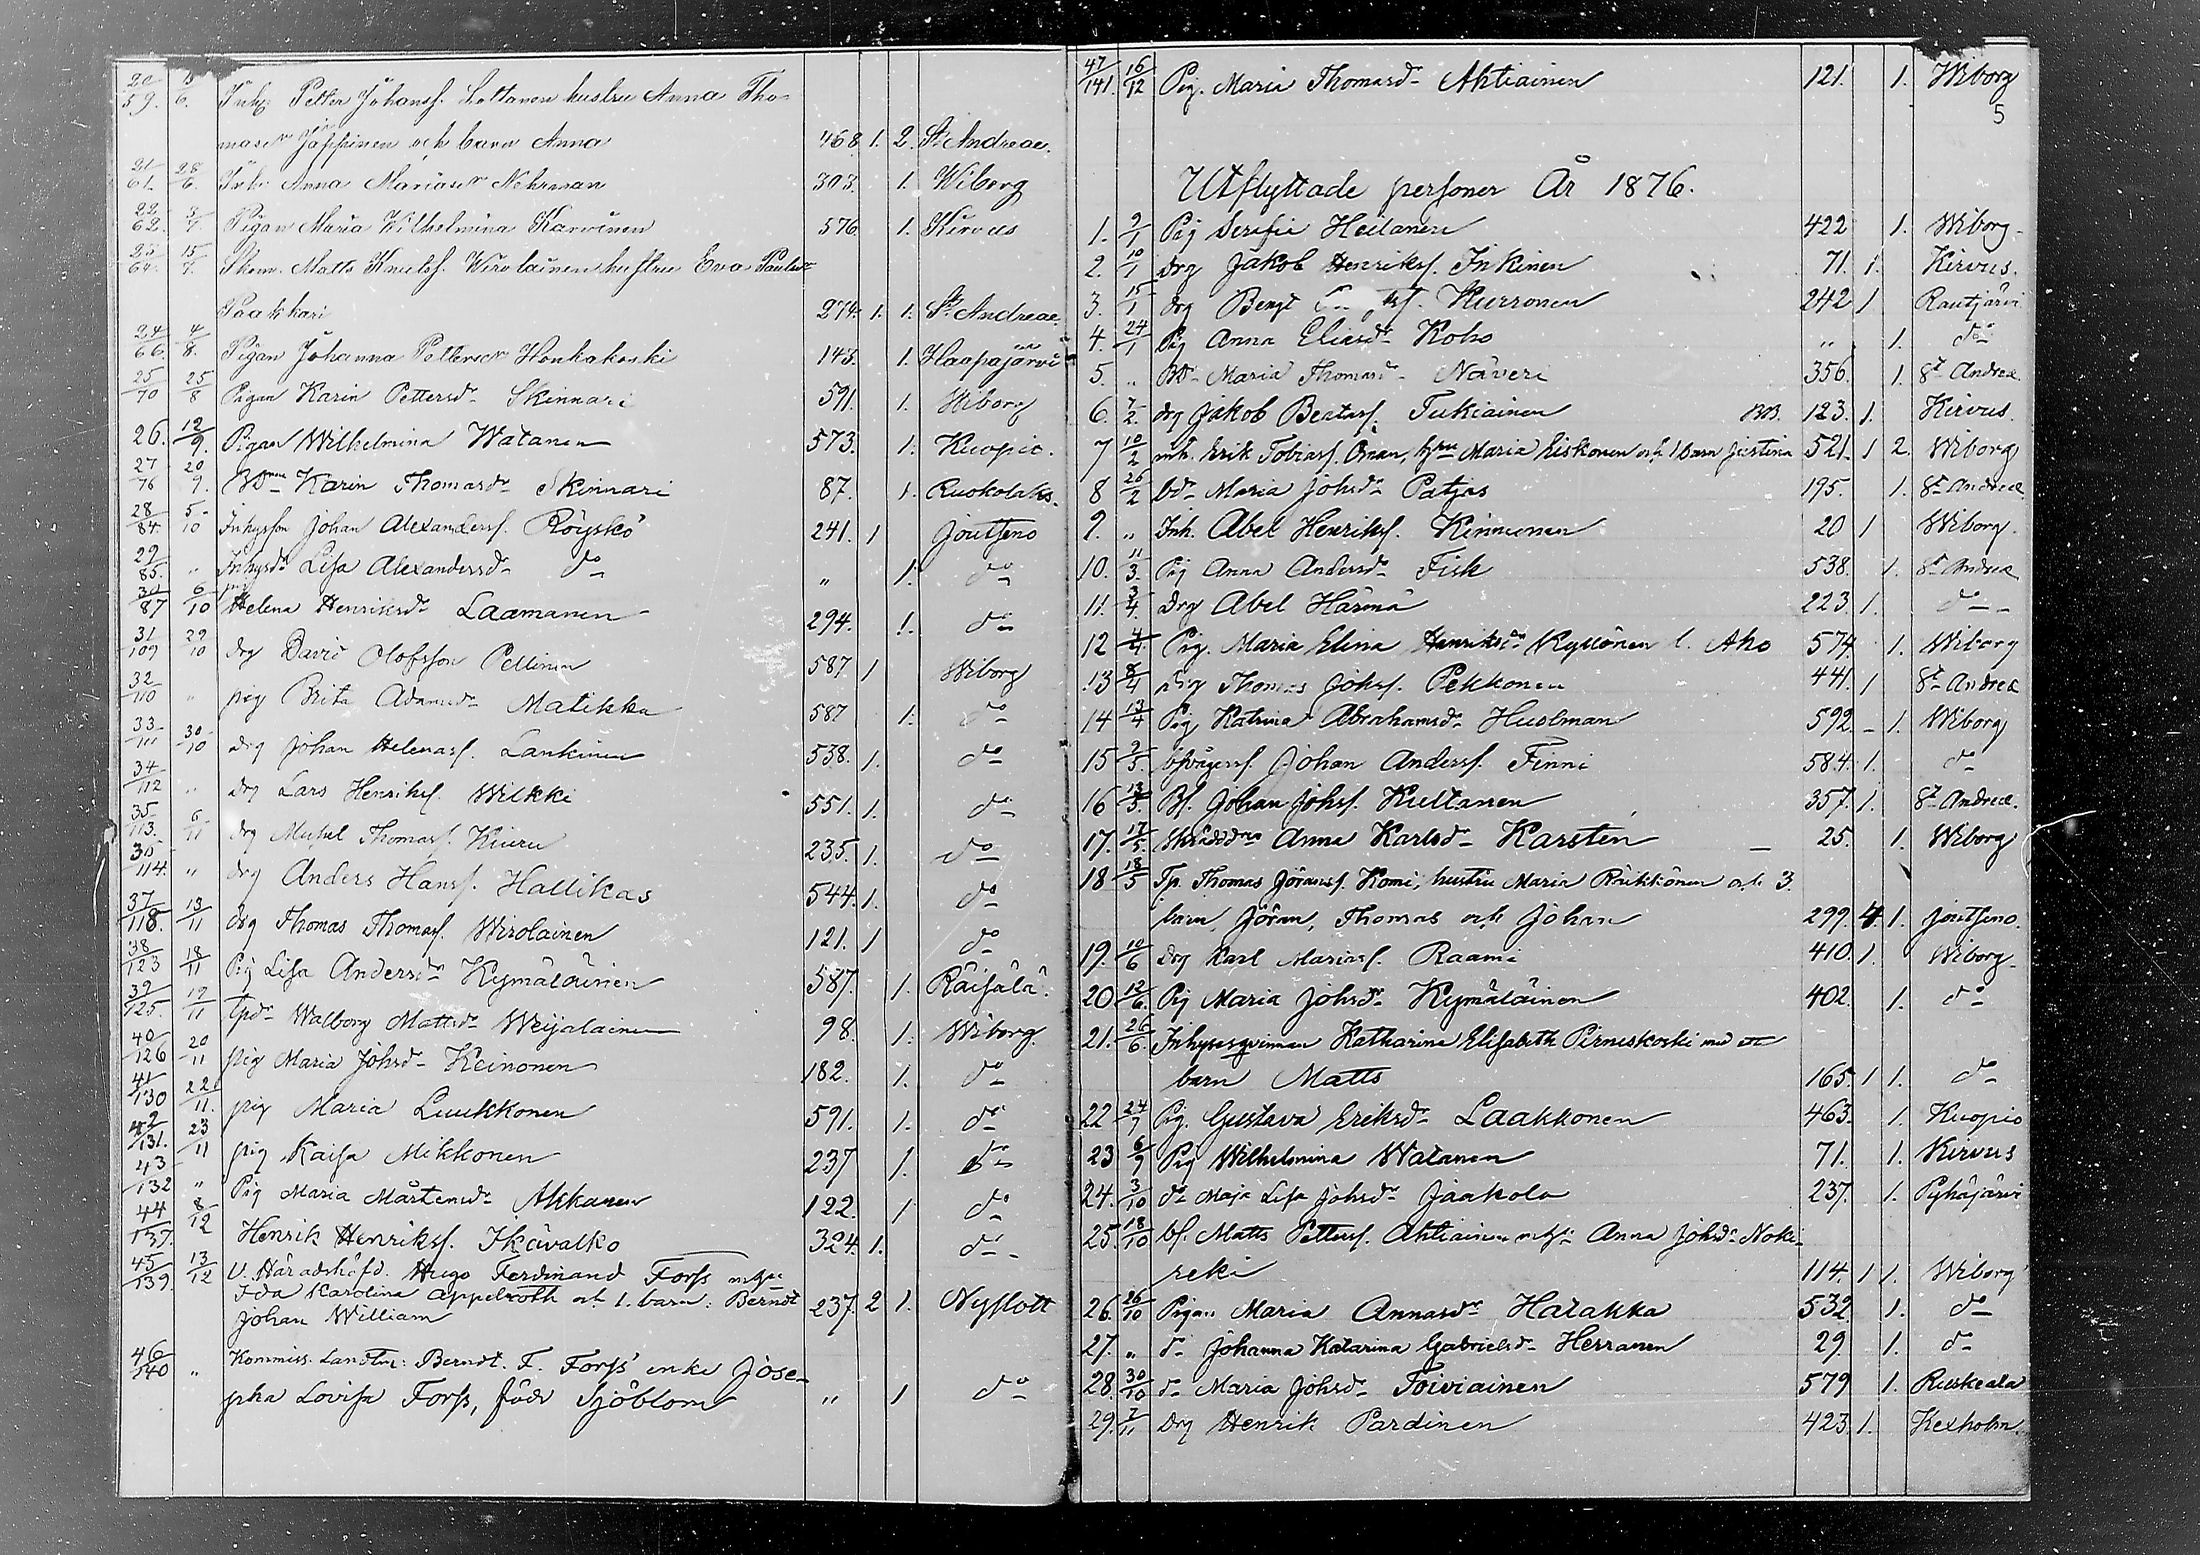 20/59. 6. Inh: Petter Johansf. Lottanen hustru Anna Tho-
masdr Jäppinen och barn Anna 468. 1. 2. St Andreae.
21/61. 28/6. Inh: Anna Mariasdr Nehrman 303. 1. Wiborg
22/62. 3/7. Pigan Maria Wilhelmina Karvinen 576 1. Kirvus
23/64. 15/7. Skom. Matts Knutsf. Wirolainen hustru Eva Paulsdr
Paakkari 274. 1. 1. St Andreae.
24/66. 4/8. Pigan Johanna Pettersdr Honkakoski 143. 1. Haapajärvi
25/70 25/8 Pigan Karin Pettersd- Skinnari 591. 1. Wiborg
26. 12/9. Pigan Wilhelmina Watanen 573. 1. Kuopio.
27/76 20/9. Karin Thomasdr Skinnari 87. 1. Ruokolaks.
28/84. 5/10 Inhysson Johan Alexandersf. Röyskö 241. 1 Joutseno
29/85. " Inhysdr Lisa Alexandersd- do " 1. do
30/87 6/10 Helena Henriksdr Laamanen 294. 1. do
31/109 29/10 drg David Olofsson Pellinen 587 1 Wiborg
32/110 " pig Brita Adamsdr Matikka 587 1. do
33/111 30/10 drg Johan Helenasf. Lankinen 538. 1. do
34/112 " drg Lars Henriksf. Wilkki 551. 1. do
35/113. 6/11 drg Michel Thomasf. Kiuru 235. 1. do
36/114. " drg Anders Hansf. Hallikas 544. 1. do
37/118. 13/11 drg Thomas Thomasf. Wirolainen 121. 1 do
38/123 18/11 Pig Lisa Andersdr Kymäläinen 587. 1. Räisälä.
39/125. 19/11 tpdr Walborg Mattsdr Weijalainen 98. 1. Wiborg.
40/126 20/11 pig Maria Johsd- Keinonen 182. 1. do
41/130 22/11. pig Maria Luukkonen 591. 1. do
42/131. 23/11 pig Kaisa Mikkonen 237 1. do
43/132 " Pig Maria Mårtensdr Akkanen 122. 1 do
44/137. 8/12 Henrik Henriksf. Ikävalko 324. 1. do
45/139. 13/12 V. Häradshöfd. Hugo Ferdinand Forss
Ida Karolina Appelroth och 1. barn: Berndt
Johan William 237. 2 1. Nyslott
46/140 " Kommiss. Landtm: Berndt. F. Forss' enka Jose-
pha Lovisa Forss, född Sjöblom " 1 do
47/141. 16/12 Pig. Maria Thomasd- Ahtiainen 121. 1. Wiborg
5
Utflyttade personer År 1876.
1. 2/1 Pig Serafia Heilanen 422 1. Wiborg-
2. 10/1 drg Jakob Henriksf. Inkinen 71. 1. Kirvus.
3. 15/1 drg Bengt Kurronen 242 1 Rautjärvi
4. 24/1 Pig Anna Eliasdr Koho " 1. do
5. " Maria Thomasd- Näveri 356. 1. St Andreæ.
6. 7/2. drg Jakob Beatasf. Tukiainen 123. 1. Kirvus.
7 10/2 inh. Erik Tobiasf. Oman, hru Maria Eiskonen och 1 barn Justina 521. 1 2. Wiborg
8 26/2 bdr Maria Johsdr Patjas 195. 1. St Andreæ
9. " Inh. Abel Henriksf. Kinnunen 20 1 Wiborg.
10. 11/3. Pig Anna Andersdr Fisk 538. 1. St Andreæ
11. 3/4. Drg Abel Härmä 223 1. do
12 4/4. Pig. Maria Elina Henriksdr Kyllönen l. Aho 574. 1. Wiborg
13 8/4 drg Thomas Johsf. Pekkonen 441. 1 St Andreæ
14 13/4 Pig Katrina Abrahamsdr Huslman 592. - 1. Wiborg
15 2/5. Johan Andersf. Finni 584. 1. do
16 13/5. Bf. Johan Johsf. Kultanen 357. 1. St Andreæ.
17. 17/5. Anna Karlsd- Karstén 25. 1. Wiborg
18 18/5 Tp. Thomas Jöransf. Komi, hustru Maria Rikkonen och 3.
barn, Jöran, Thomas och Johan 299. 4. 1. Joutseno.
19. 10/6 Drg Karl Mariasf. Raama 410. 1. Wiborg-
20 12/6. Pig Maria Johsdr Kymäläinen 402. 1. do
21. 26/6. Inhysesqvinnan Katharina Elisabeth Pirneskoski med ett
barn Matts 165. 1 1. do
22 24/7 Pig. Gustava Eriksdr Laakkonen 463. 1. Kuopio
23 6/9 Pig Wilhelmina Watanen 71. 1. Kirvus
24. 3/10 do Maja Lisa Johsdr Jaakola 237. 1. Pyhäjärvi
25. 18/10 bf. Matts Pettersf. Ahtiainen Anna Johsdr Noki-
reki 114. 1 1. Wiborg
26. 26/10 Pigan Maria Annasdr Hatakka 532 1. do
27. " do Johanna Katarina Gabrielsd- Herranen 29 1. do
28. 30/10 do Maria Johsdr Toiviainen 579 1. Ruskeala
29. 7/11 Drg Henrik Pardinen 423. 1. Kexholm.